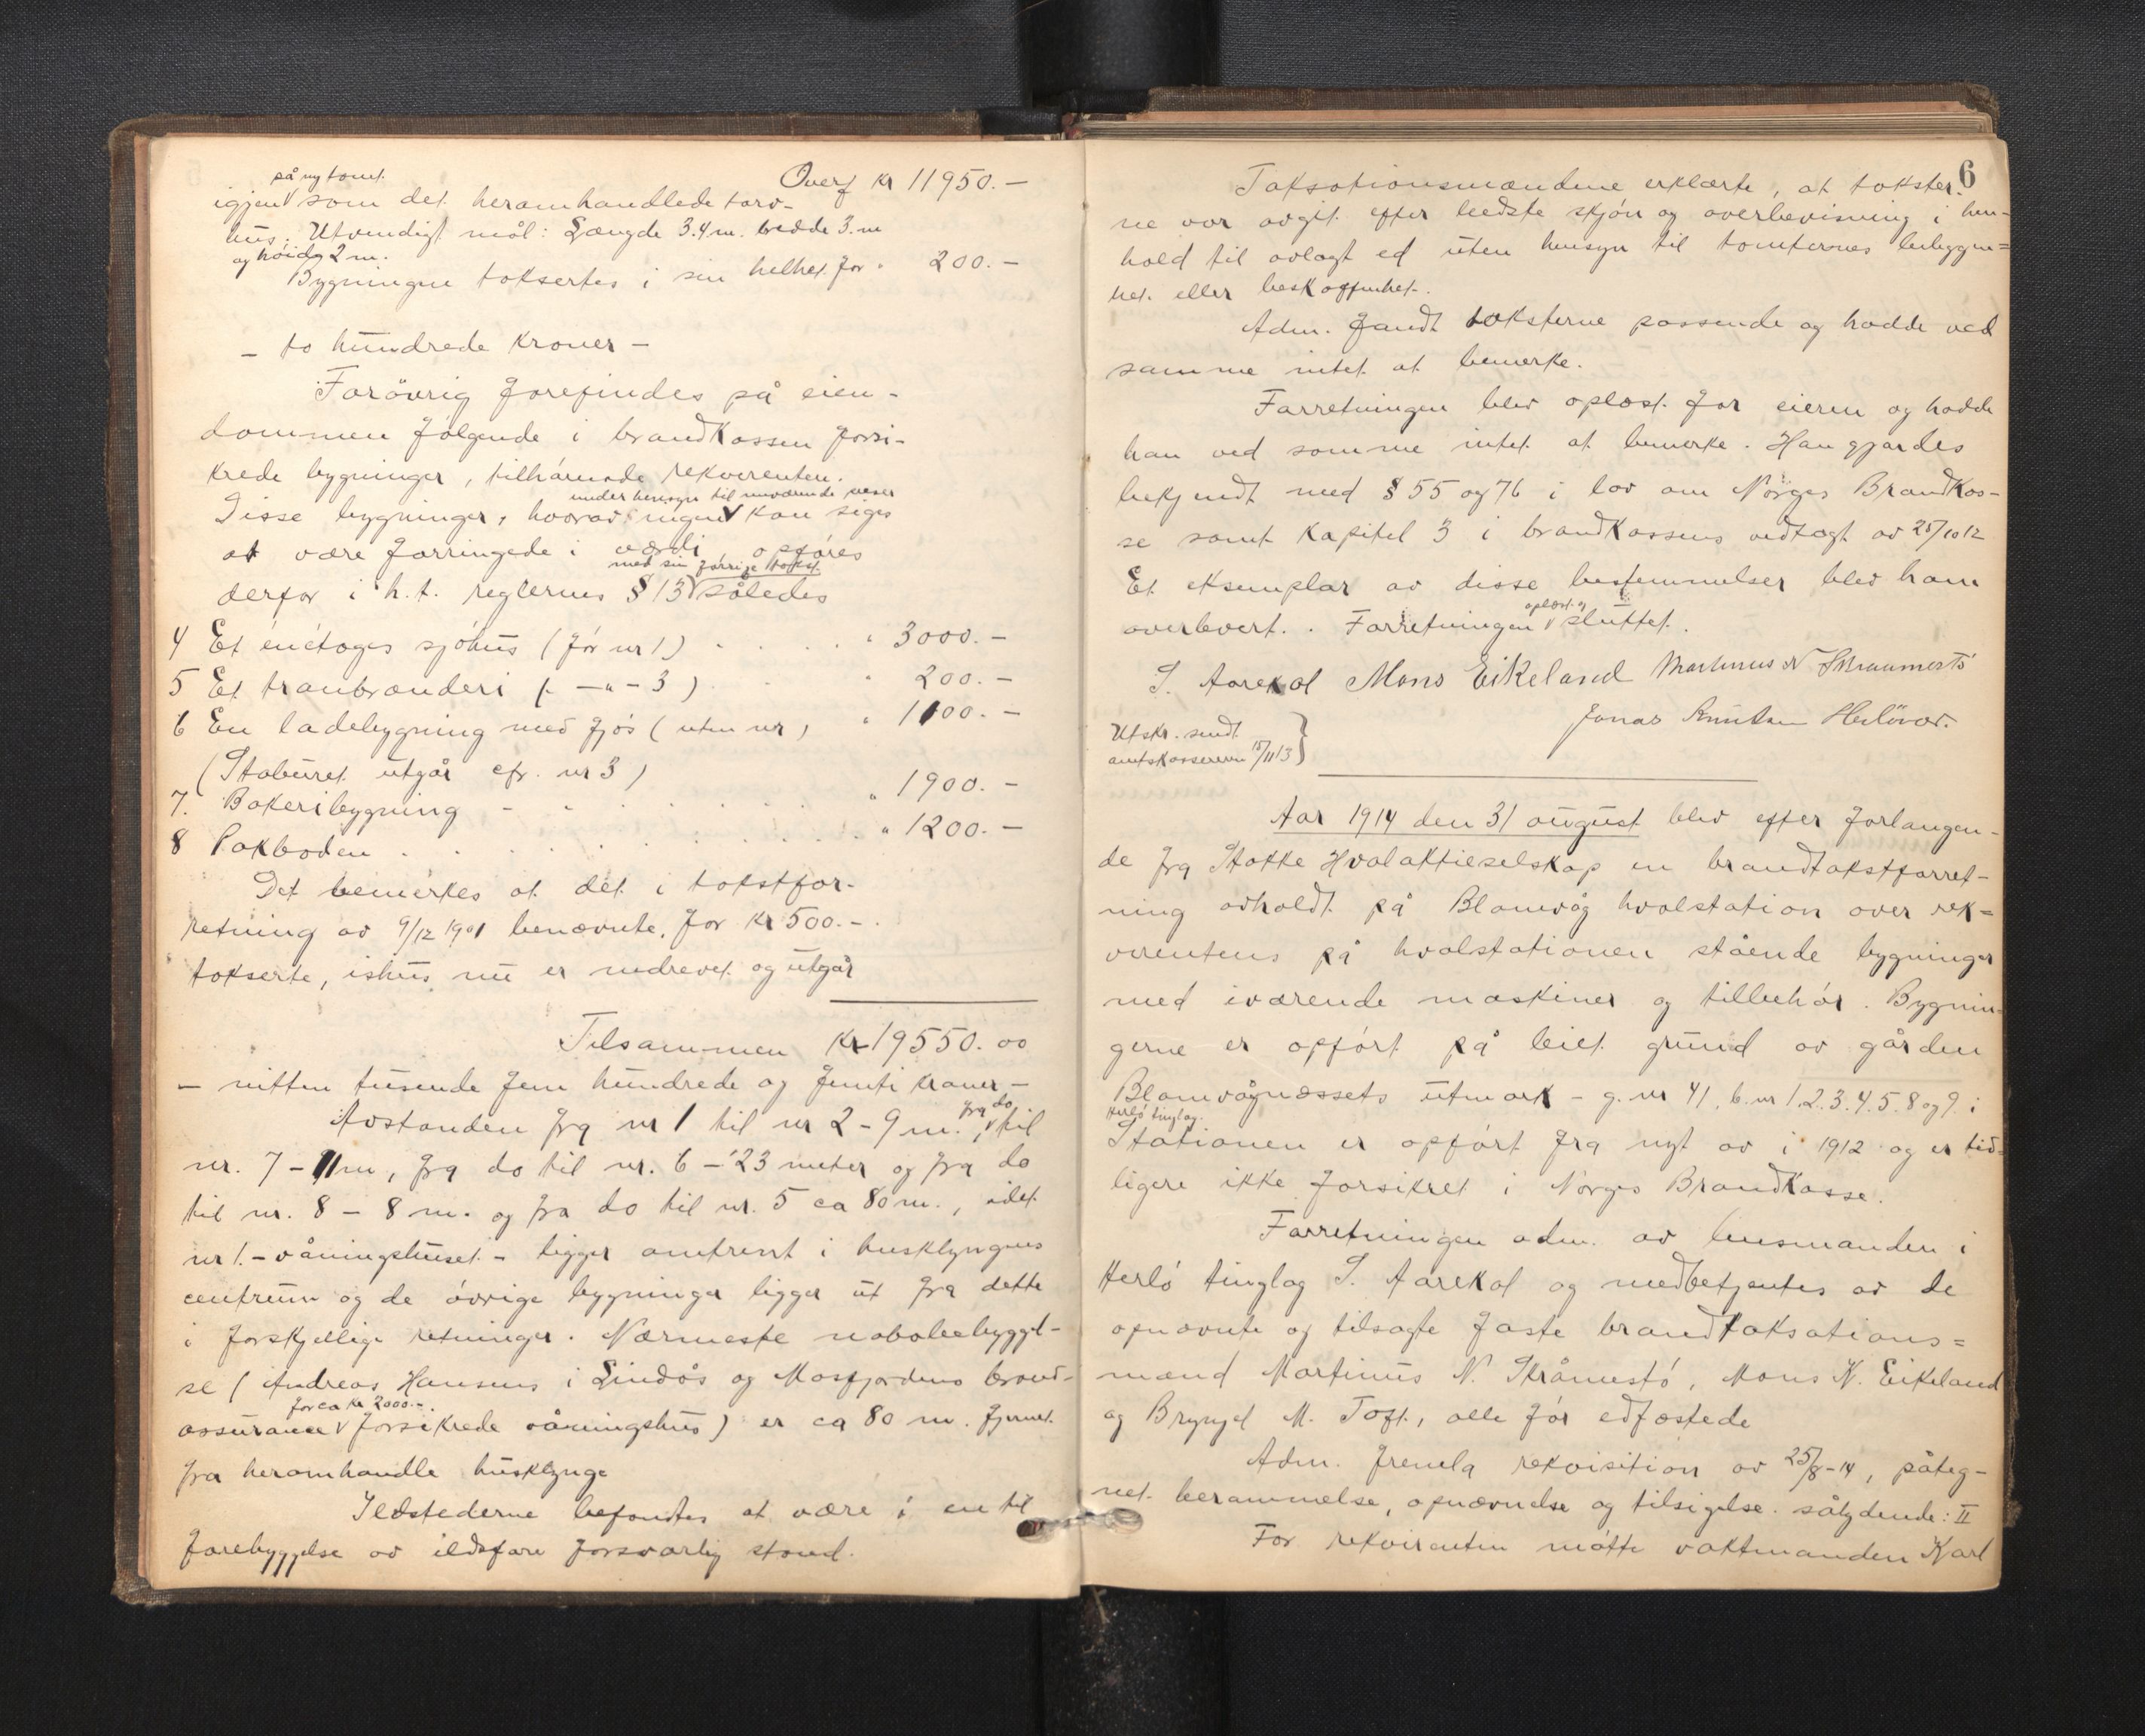 Overf kr 11950.-
på ny tomt
igjen som det heromhandlede torv-
hus. Utvendigt mål: Længde 3.4 m. bredde 3. m
og höide 2 m.
Bygningen taksertes i sin helhet for " 200.-
- to hundrede kroner -
Forövrig forefindes på eien-
dommen fölgende i brandkassen forsi-
krede bygninger, tilhörende rekvirenten.
under hensyn til nuværende priser
Disse bygninger, hvorav ingen kan siges
at være forringede i værdi, opföres
med sin forrige takst
derfor i h.t. reglernes § 13 således
4 Et énétages sjöhus (för nr 1) . . . " 3000.-
5 Et tranbrænderi (- " - 3) . " 200.-
6 En ladebygning med fjös (uten nr) " 1100.-
(Staburet utgår cfr. nr 3)
7. Bakeribygning - . . . . . . " 1900.-
8 Pakboden . . . . . . . . " 1200.-
Det bemerkes at det i takstfor-
retning av 9/12 1901 benævnte, for kr 500.-
takserte, ishus nu er nedrevet og utgår
Tilsammen kr 19550.00
- nitten tusende fem hundrede og femti kroner -
Avstanden fra nr 1 til nr 2 - 9 m., fra do til
nr. 7 - 11 m, fra do til nr. 6 - 23 meter og fra do
til nr. 8 - 8 m. og fra do til nr. 5 ca 80 m., idet
nr 1. - våningshuset - ligger omtrent i husklyngens
centrum og de övrige bygninger ligger ut fra dette
i forskjellige retninger. Nærmeste nabobebyggel-
se (Andreas Hansens i Lindås og Masfjordens brand-
for ca kr 2000.-
assurance forsikrede våningshus) er ca 80 m. fjernet
fra heromhandle husklynge
Ildstederne befandtes at være i en til
forebyggelse av ildsfare forsvarlig stand.
6
Taksationsmændene erklærte, at takster-
ne var avgit efter bedste skjön og overbevisning i hen-
hold til avlagt ed uten hensyn til tomternes beliggen=
het eller beskaffenhet.
Adm. fandt taksterne passende og hadde ved
samme intet at bemerke.
Forretningen blev oplæst for eieren og hadde
han ved samme intet at bemerke. Han gjordes
bekjendt med § 55 og 76 i lov om Norges Brandkas-
se samt kapitel 3 i brandkassens vedtægt av 25/10 12
Et eksemplar av disse bestemmelser blev ham
oplæst og
overlevert. . Forretningen sluttet.
S. Aarekol Mons Eikeland Martinus N Skraamestö
Jonas Knutsen Herlövær.
Utskr. sendt
amtskassereren 15/11 13 }
Aar 1914 den 31 august blev efter forlangen-
de fra Stokke Hvalaktieselskap en brandtakstforret-
ning avholdt på Blomvåg hvalstation over rek=
virentens på hvalstationen stående bygninger
med iværende maskiner og tilbehör. Bygnin-
gerne er opfört på leiet grund av gården
Blomvågnæssets utmark - g. nr 41, b. nr 1. 2. 3. 4. 5. 8 og 9 i
Herlö tinglag.
Stationen er opfört fra nyt av i 1912 og er tid=
ligere ikke forsikret i Norges Brandkasse.
Forretningen adm. av lensmanden i
Herlö tinglag S. Aarekol og medbetjentes av de
opnævnte og tilsagte faste brandtaksations=
mænd Martinus N. Skråmestö, Mons N. Eikeland
og Brynjel M. Toft, alle för edfæstede
Adm. fremla rekvisition av 25/8-14, påteg-
net berammelse, opnævnelse og tilsigelse sålydende: II
For rekvirenten mötte vaktmanden Karl